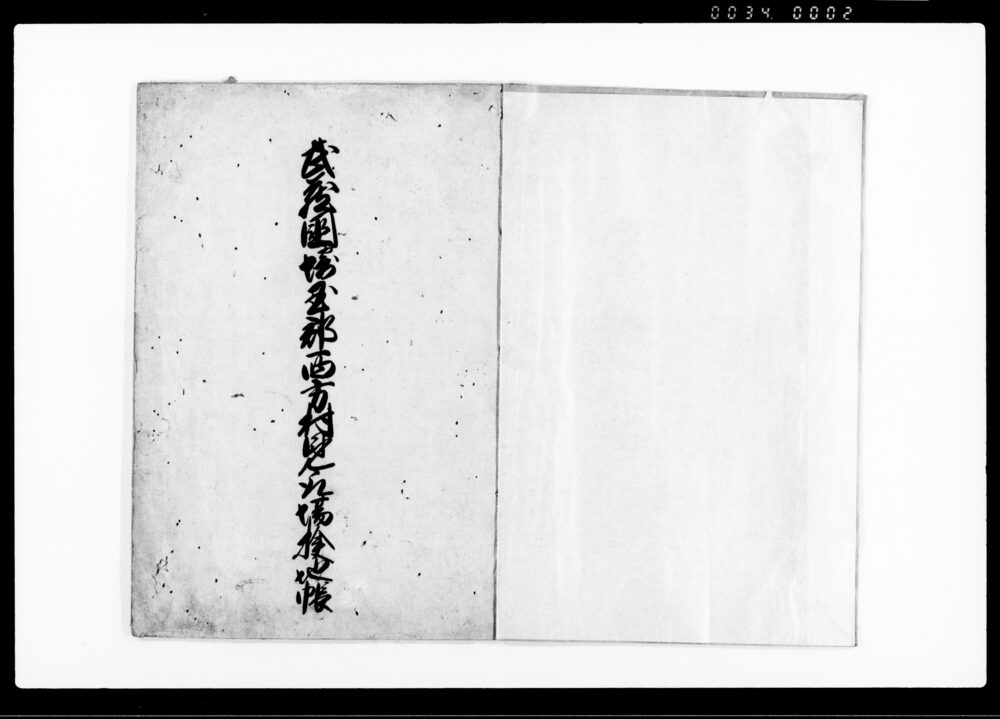 0034 0002
武蔵国埼玉郡西方村見取場検地帳